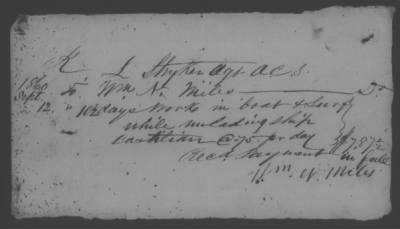 K L Stryker Agt A C S
1860
Sept. To Wm N. Miles Dr
12. " 10½ days work in boat & Surf
while unlading ship
@ 75 pr day $7,87½
Recd Payment in full
Wm. N. Miles